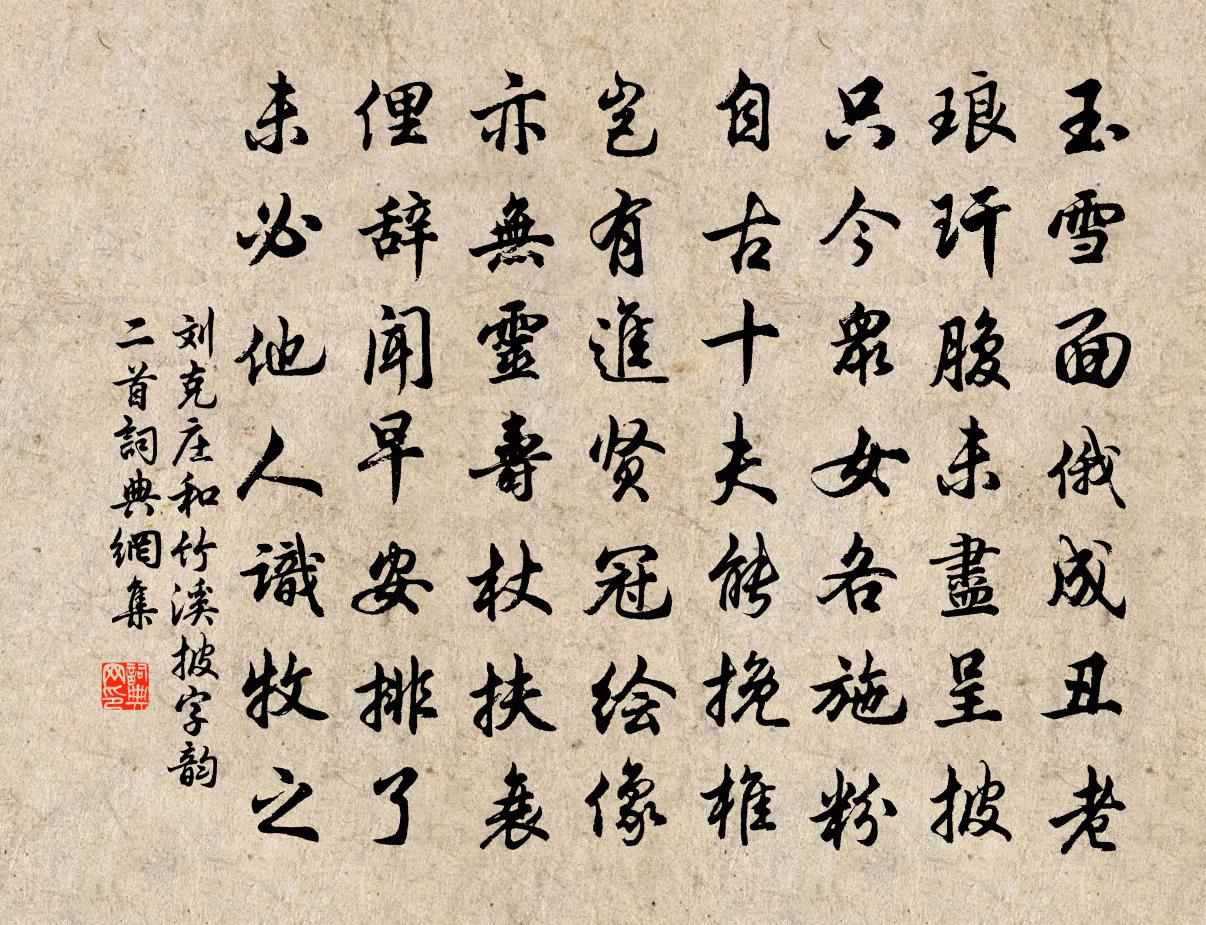 玉雪面俄成丑老
琅玕腹未盡呈披
只今眾女各施粉
自古十夫能挽椎
岂有進贤冠绘像
亦無靈壽杖扶衰
俚辞聞早安排了
未必他人識牧之
刘克庄和竹溪披字韵
二首詞典網集
詞典网印